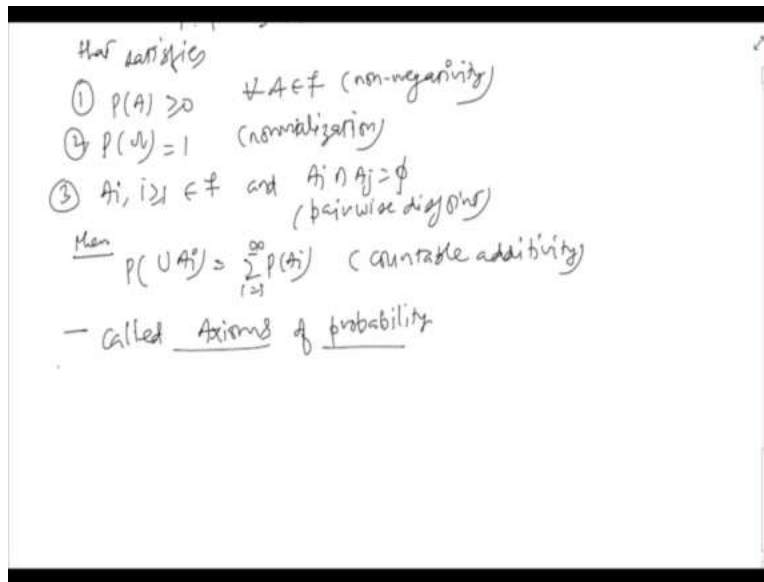 that satisfies
① P(A) ≥0 ∀ A ∈ F (non-negativity)
② P(Ω) = 1 (normalization)
③ Ai, i≥1 ∈ F and Ai ∩ Aj = ϕ
(pairwise disjoint)
then
P(∪Ai) = ∑ i=1 ∞ P(Ai) (countable additivity)
— called Axioms of probability